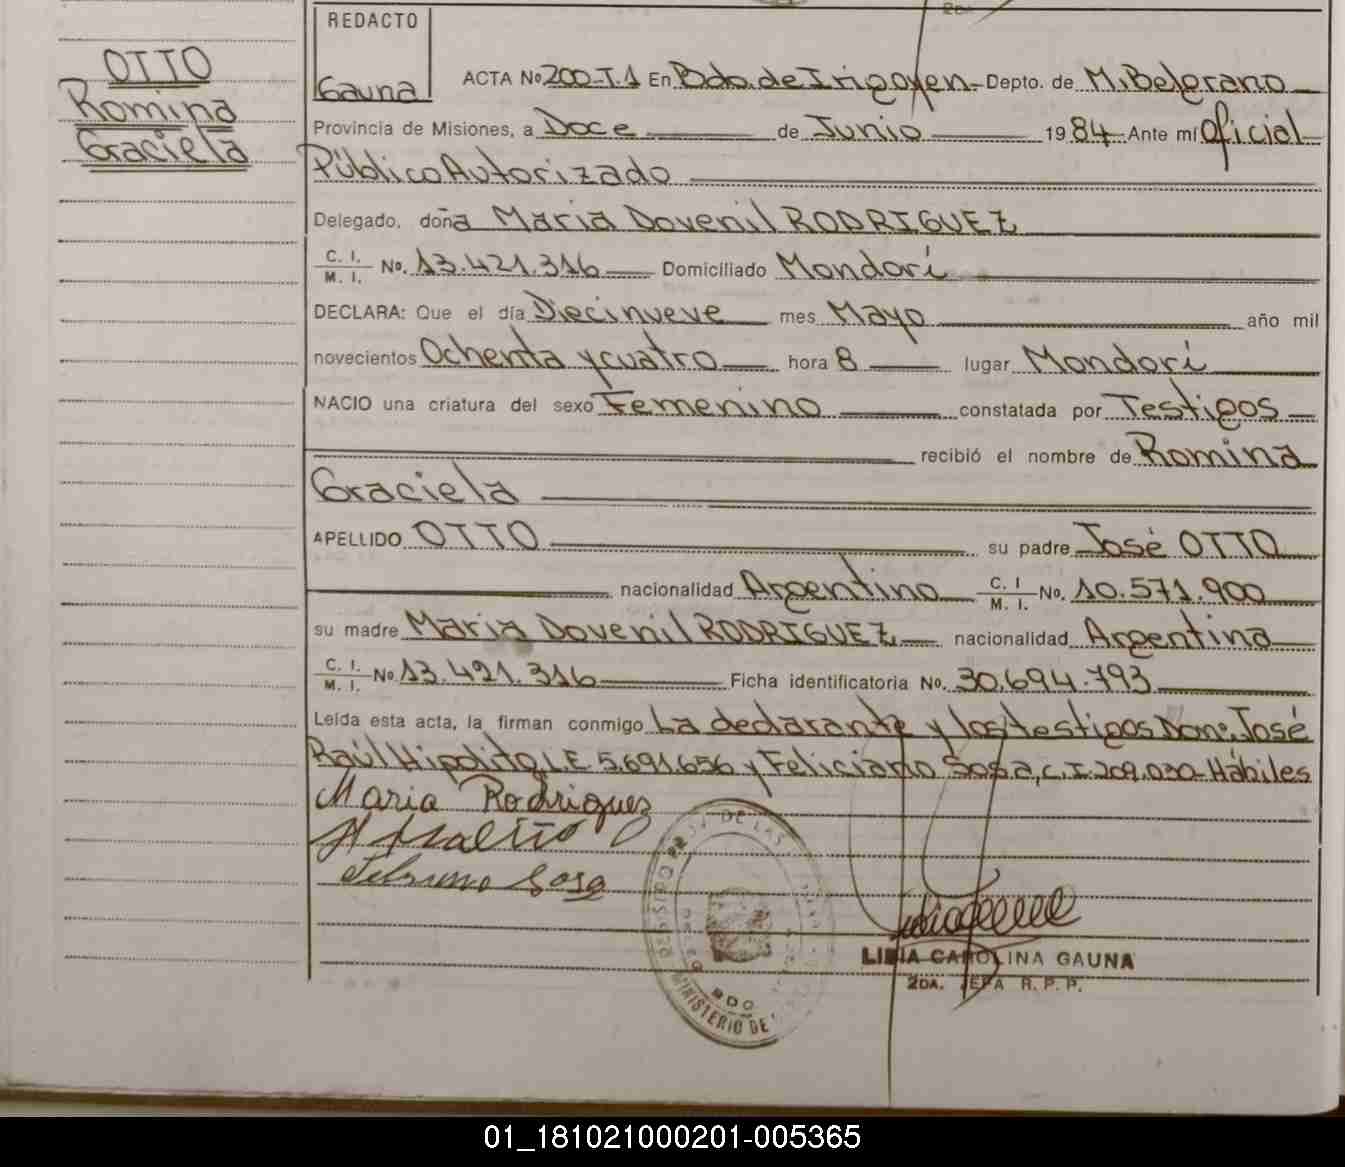 OTTO
Romina
Graciela
REDACTO
Gauna
ACTA No 200-T.1 En Bdo. de Irigoyen - Depto. de M. Belgrano
Provincia de Misiones, a Doce de Junio 1984 Ante mí Oficial
Público Autorizado
Delegado, doña Maria Dovenil RODRIGUEZ
C. I.
M. I. No. 13.421.316 Domiciliado Mondorí
DECLARA: Que el día Diecinueve mes Mayo año mil
novecientos Ochenta y cuatro hora 8 lugar Mondorí
NACIO una criatura del sexo Femenino constatada por Testigos
recibió el nombre de Romina
Graciela
APELLIDO OTTO su padre José OTTO
nacionalidad Argentino C. I
M. I. No. 10.571.900
su madre Maria Dovenil RODRIGUEZ nacionalidad Argentina
C. I.
M. I. No 13.421.316 Ficha identificatoria No. 30.694.793
Leída esta acta, la firman conmigo La declarante y los testigos Don: José
Raúl Hipolito, L.E 5.691.656 y Feliciano Sosa, C.I. 209.030 - Hábiles
Maria Rodriguez
Sosa
MINISTERIO DE
BDO
LIDIA CAROLINA GAUNA
2DA. JEFA R. P. P.
01_181021000201-005365